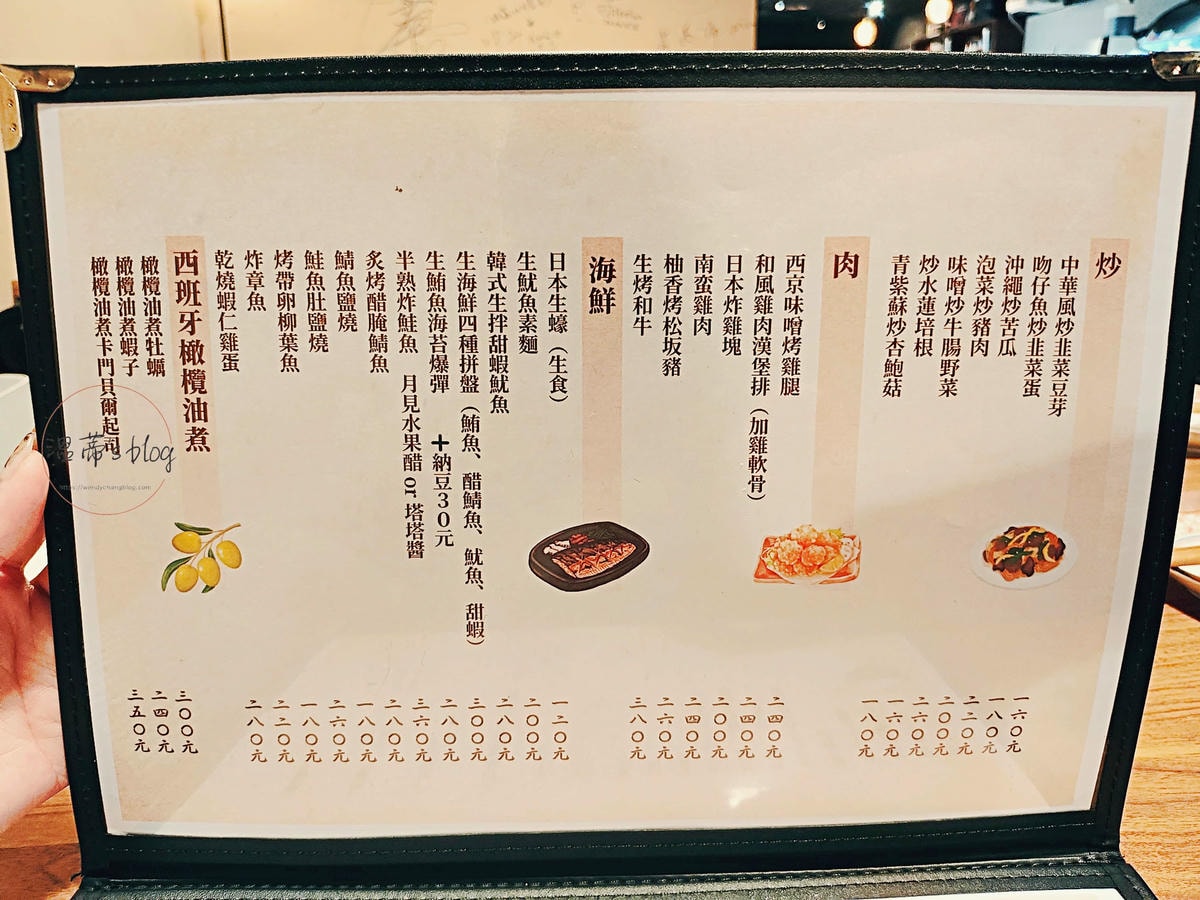 炒
中華風炒韭菜豆芽 一六〇元
吻仔魚炒韭菜蛋 一八〇元
沖繩炒苦瓜 二二〇元
泡菜炒豬肉 二〇〇元
味噌炒牛腸野菜 二六〇元
炒水蓮培根 一六〇元
青紫蘇炒杏鮑菇 一八〇元
肉
西京味噌烤雞腿 二四〇元
和風雞肉漢堡排（加雞軟骨） 二四〇元
日本炸雞塊 二〇〇元
南蛮雞肉 二四〇元
柚香烤松坂豬 二六〇元
生烤和牛 三八〇元
海鮮
日本生蠔（生食） 一二〇元
生魷魚素麵 二〇〇元
韓式生拌甜蝦魷魚 二八〇元
生海鮮四種拼盤（鮪魚、醋鯖魚、魷魚、甜蝦） 三〇〇元
生鮪魚海苔爆彈 +納豆30元 二八〇元
半熟炸鮭魚 月見水果醋 or 塔塔醬 三六〇元
炙烤醋腌鯖魚 二八〇元
鯖魚鹽燒 一八〇元
鮭魚肚鹽燒 二六〇元
烤帶卵柳葉魚 一八〇元
炸章魚 二二〇元
乾燒蝦仁雞蛋 二八〇元
西班牙橄欖油煮
橄欖油煮牡蠣 三〇〇元
橄欖油煮蝦子 二四〇元
橄欖油煮卡門貝爾起司 三五〇元
溫蒂's blog
https://wendychangblog.com